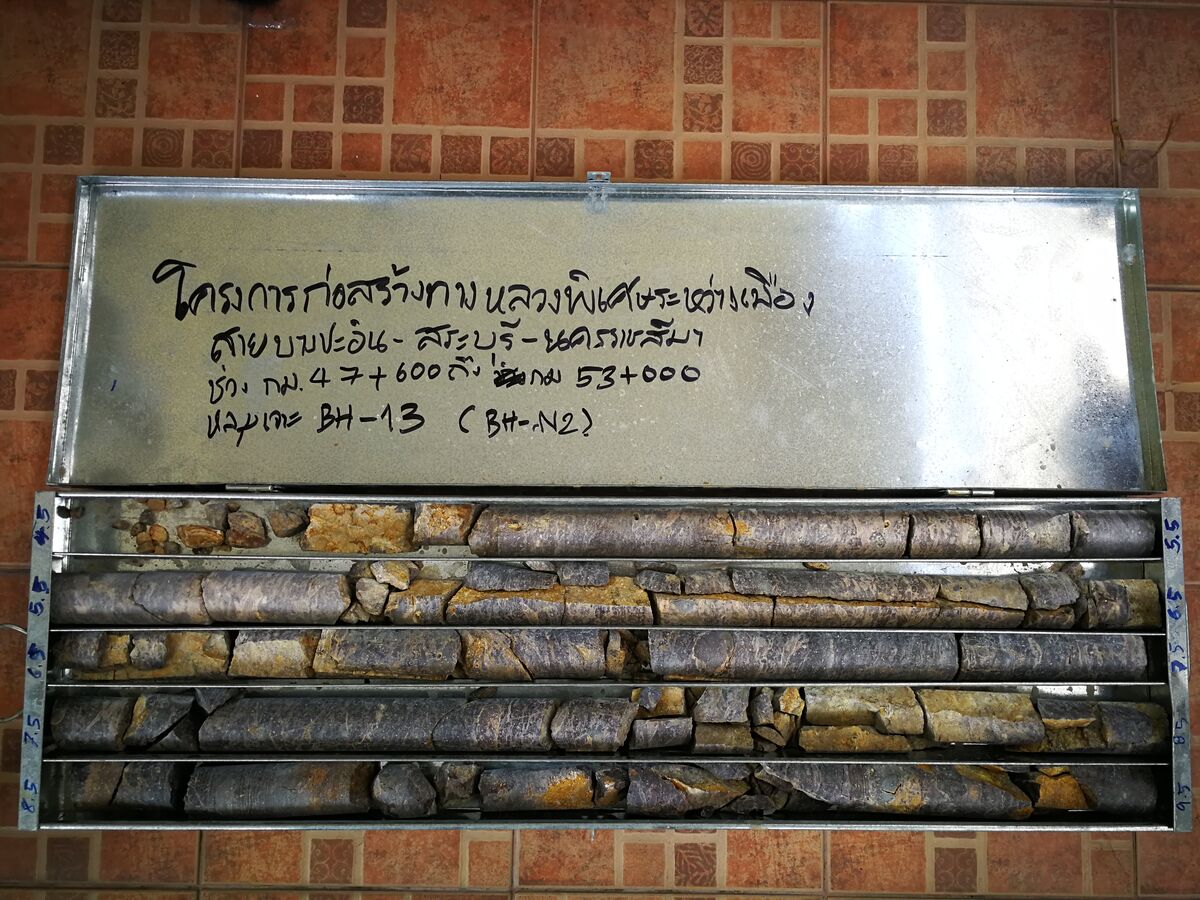 โครงการก่อสร้างทางหลวงพิเศษระหว่างเมือง
สายบางปะอิน - สระบุรี - นครราชสีมา
ช่วง กม. 47+600 ถึง กม 53+000
หลุมเจาะ BH-13 (BH-N2)
4.5 5.5
5.5 6.5
6.5 7.5
7.5 8.5
8.5 9.5